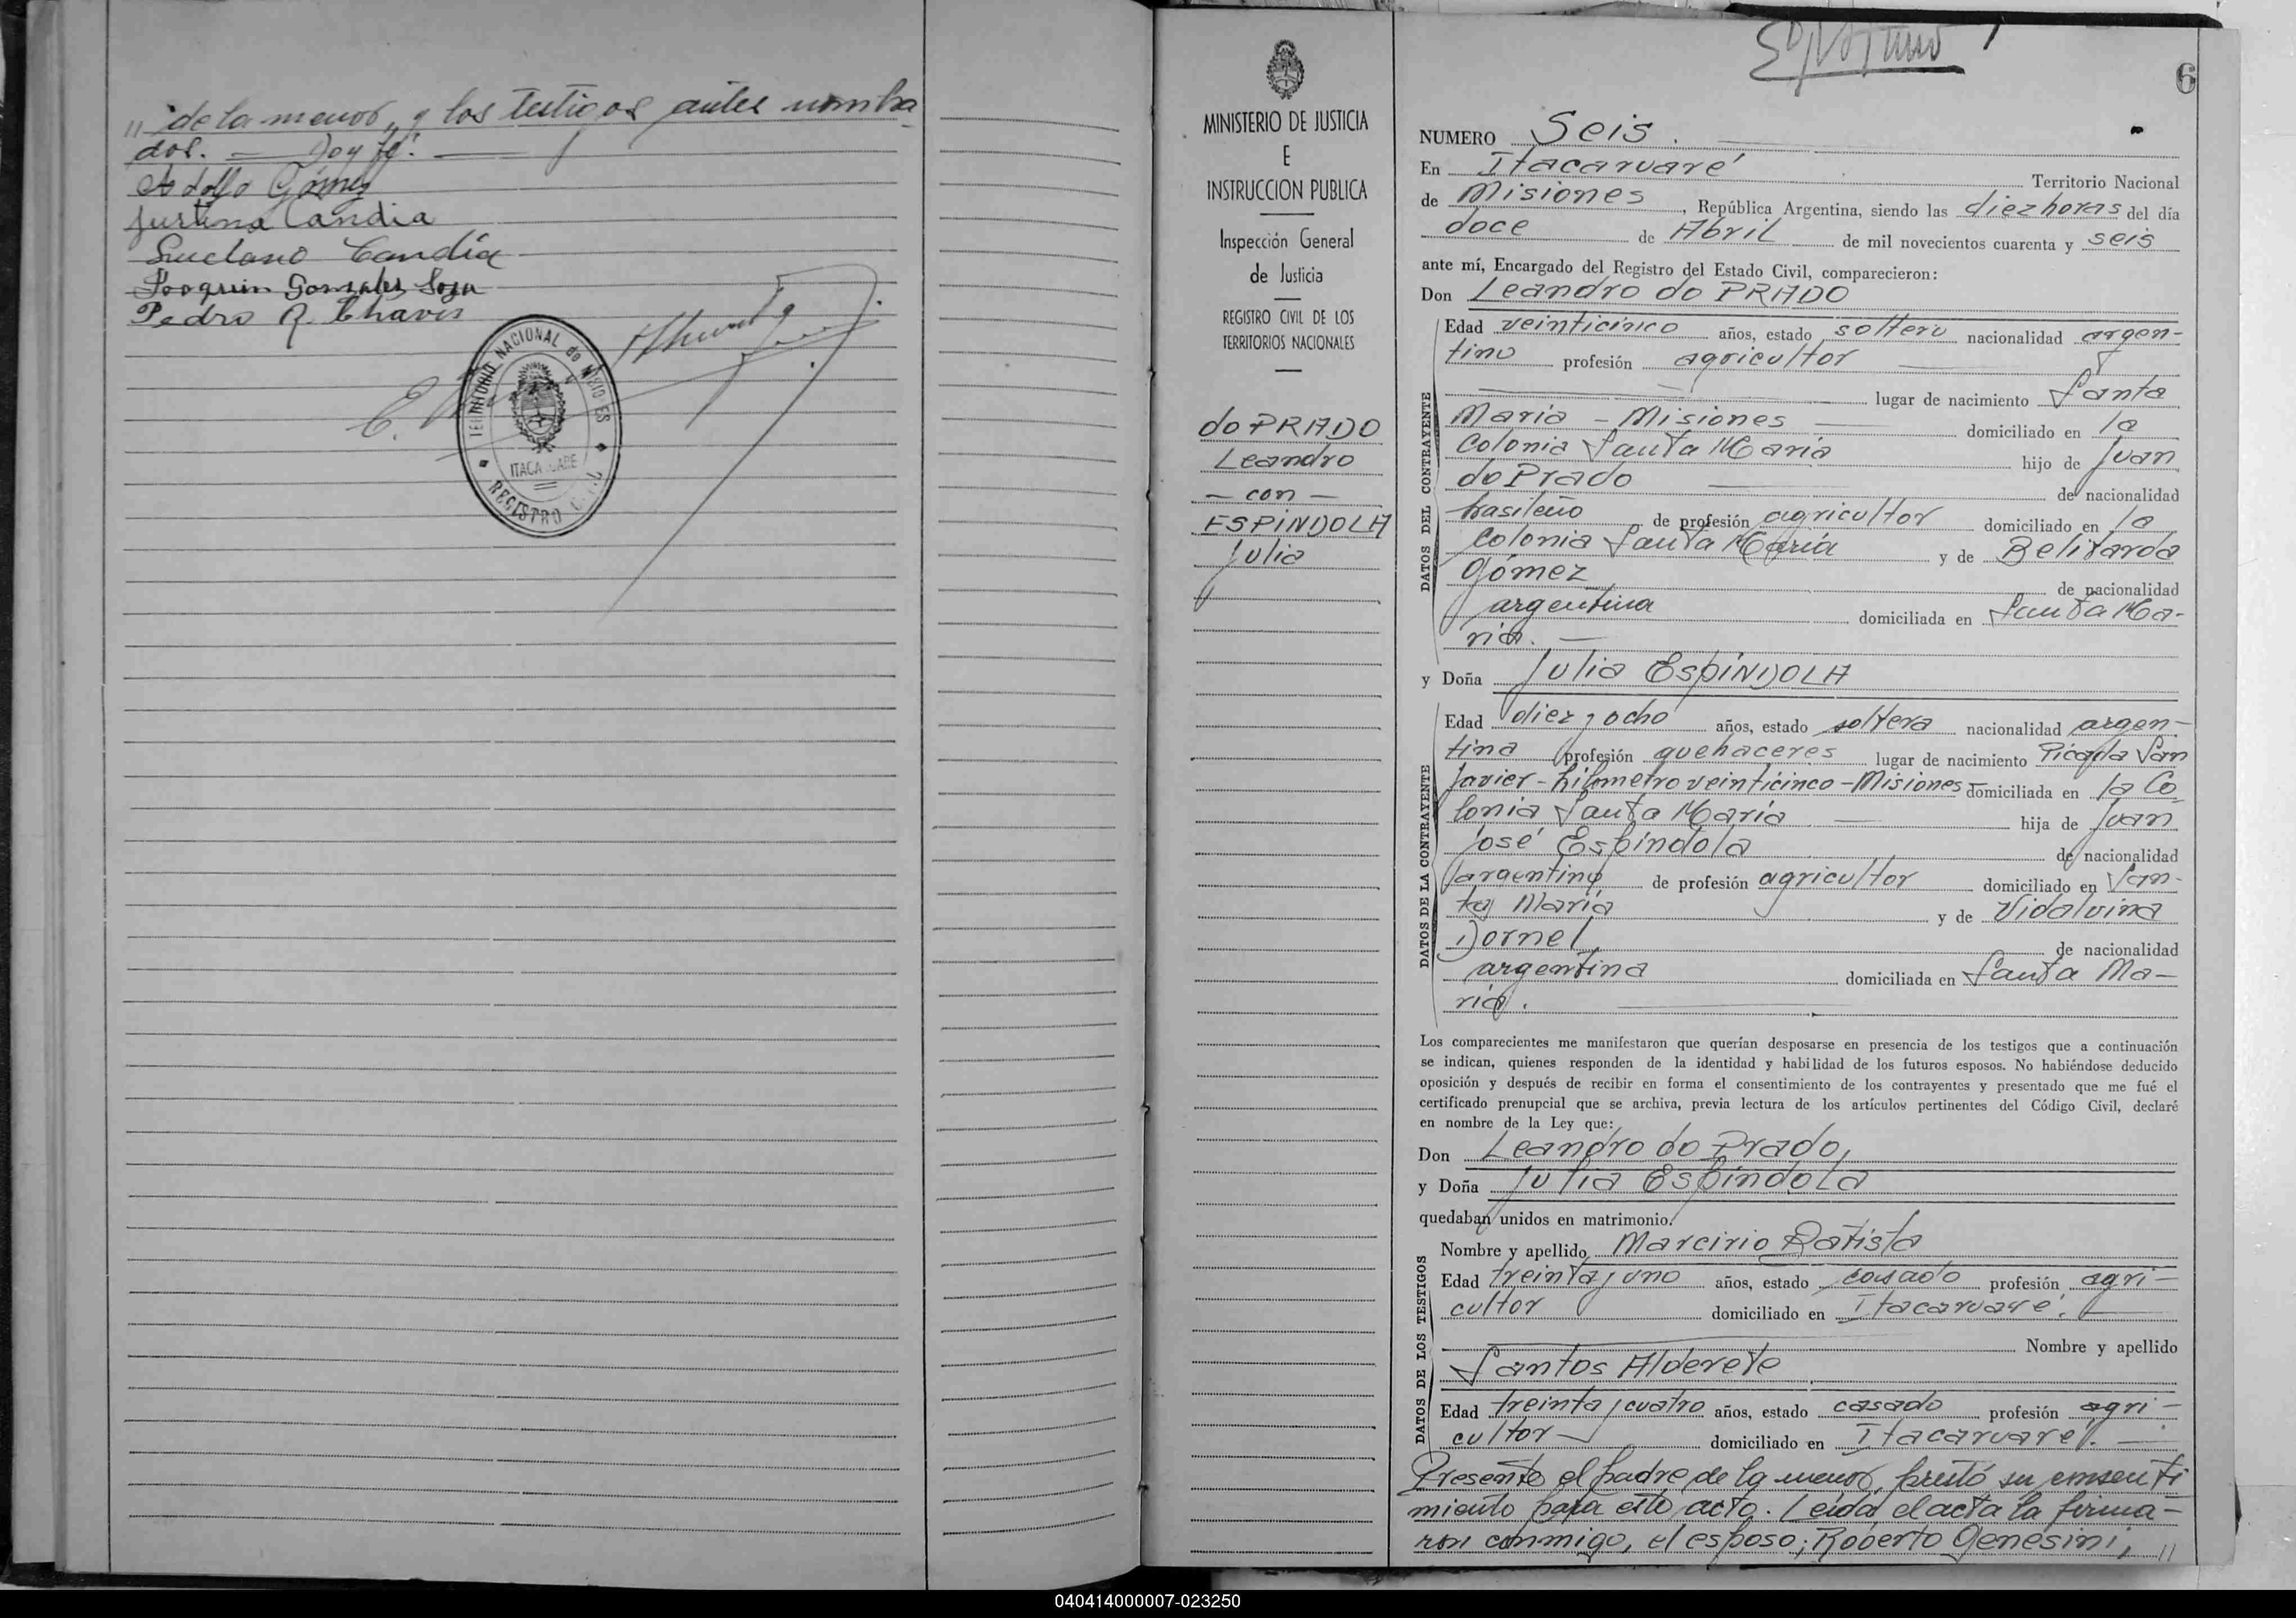 " de la menor, y los testigos antes nombra-
dos. — Doy fé. —
Adolfo Gómez
Justina Candia
Luciano Candia
Joaquin Gonzales Sosa
Pedro R. Chaves
TERRITORIO NACIONAL de MISIONES
ITACARUARE
REGISTRO CIVIL
MINISTERIO DE JUSTICIA
E
INSTRUCCION PUBLICA
Inspección General
de Justicia
REGISTRO CIVIL DE LOS
TERRITORIOS NACIONALES
do PRADO
Leandro
— con —
ESPÍNDOLA
Julia
6
NUMERO Seis.
En Itacaruaré Territorio Nacional
de Misiones, República Argentina, siendo las diez horas del día
doce de Abril de mil novecientos cuarenta y seis
ante mí, Encargado del Registro del Estado Civil, comparecieron:
Don Leandro do PRADO
DATOS DEL CONTRAYENTE
Edad veinticinco años, estado soltero nacionalidad argen-
tino profesión agricultor
lugar de nacimiento Santa
María - Misiones domiciliado en la
Colonia Santa María hijo de Juan
do Prado de nacionalidad
brasileño de profesión agricultor domiciliado en la
Colonia Santa María y de Belizarda
Gómez de nacionalidad
argentina domiciliada en Santa Ma-
ría.
y Doña Julia ESPÍNDOLA
DATOS DE LA CONTRAYENTE
Edad diez y ocho años, estado soltera nacionalidad argen-
tina profesión quehaceres lugar de nacimiento Picada San
Javier - kilómetro veinticinco - Misiones domiciliada en la Co-
lonia Santa María hija de Juan
José Espíndola de nacionalidad
argentino de profesión agricultor domiciliado en San-
ta María y de Vidalvina
Dornel de nacionalidad
argentina domiciliada en Santa Ma-
ría.
Los comparecientes me manifestaron que querían desposarse en presencia de los testigos que a continuación
se indican, quienes responden de la identidad y habilidad de los futuros esposos. No habiéndose deducido
oposición y después de recibir en forma el consentimiento de los contrayentes y presentado que me fué el
certificado prenupcial que se archiva, previa lectura de los artículos pertinentes del Código Civil, declaré
en nombre de la Ley que:
Don Leandro do Prado,
y Doña Julia Espíndola
quedaban unidos en matrimonio.
DATOS DE LOS TESTIGOS
Nombre y apellido Marcirio Batista
Edad treinta y uno años, estado casado profesión agri-
cultor domiciliado en Itacaruaré.
Nombre y apellido
Santos Alderete
Edad treinta y cuatro años, estado casado profesión agri-
cultor domiciliado en Itacaruaré.
Presente el padre de la menor, prestó su consenti
miento para este acto. Leída el acta la firma-
ron conmigo, el esposo; Roberto Genesini, "
040414000007-023250